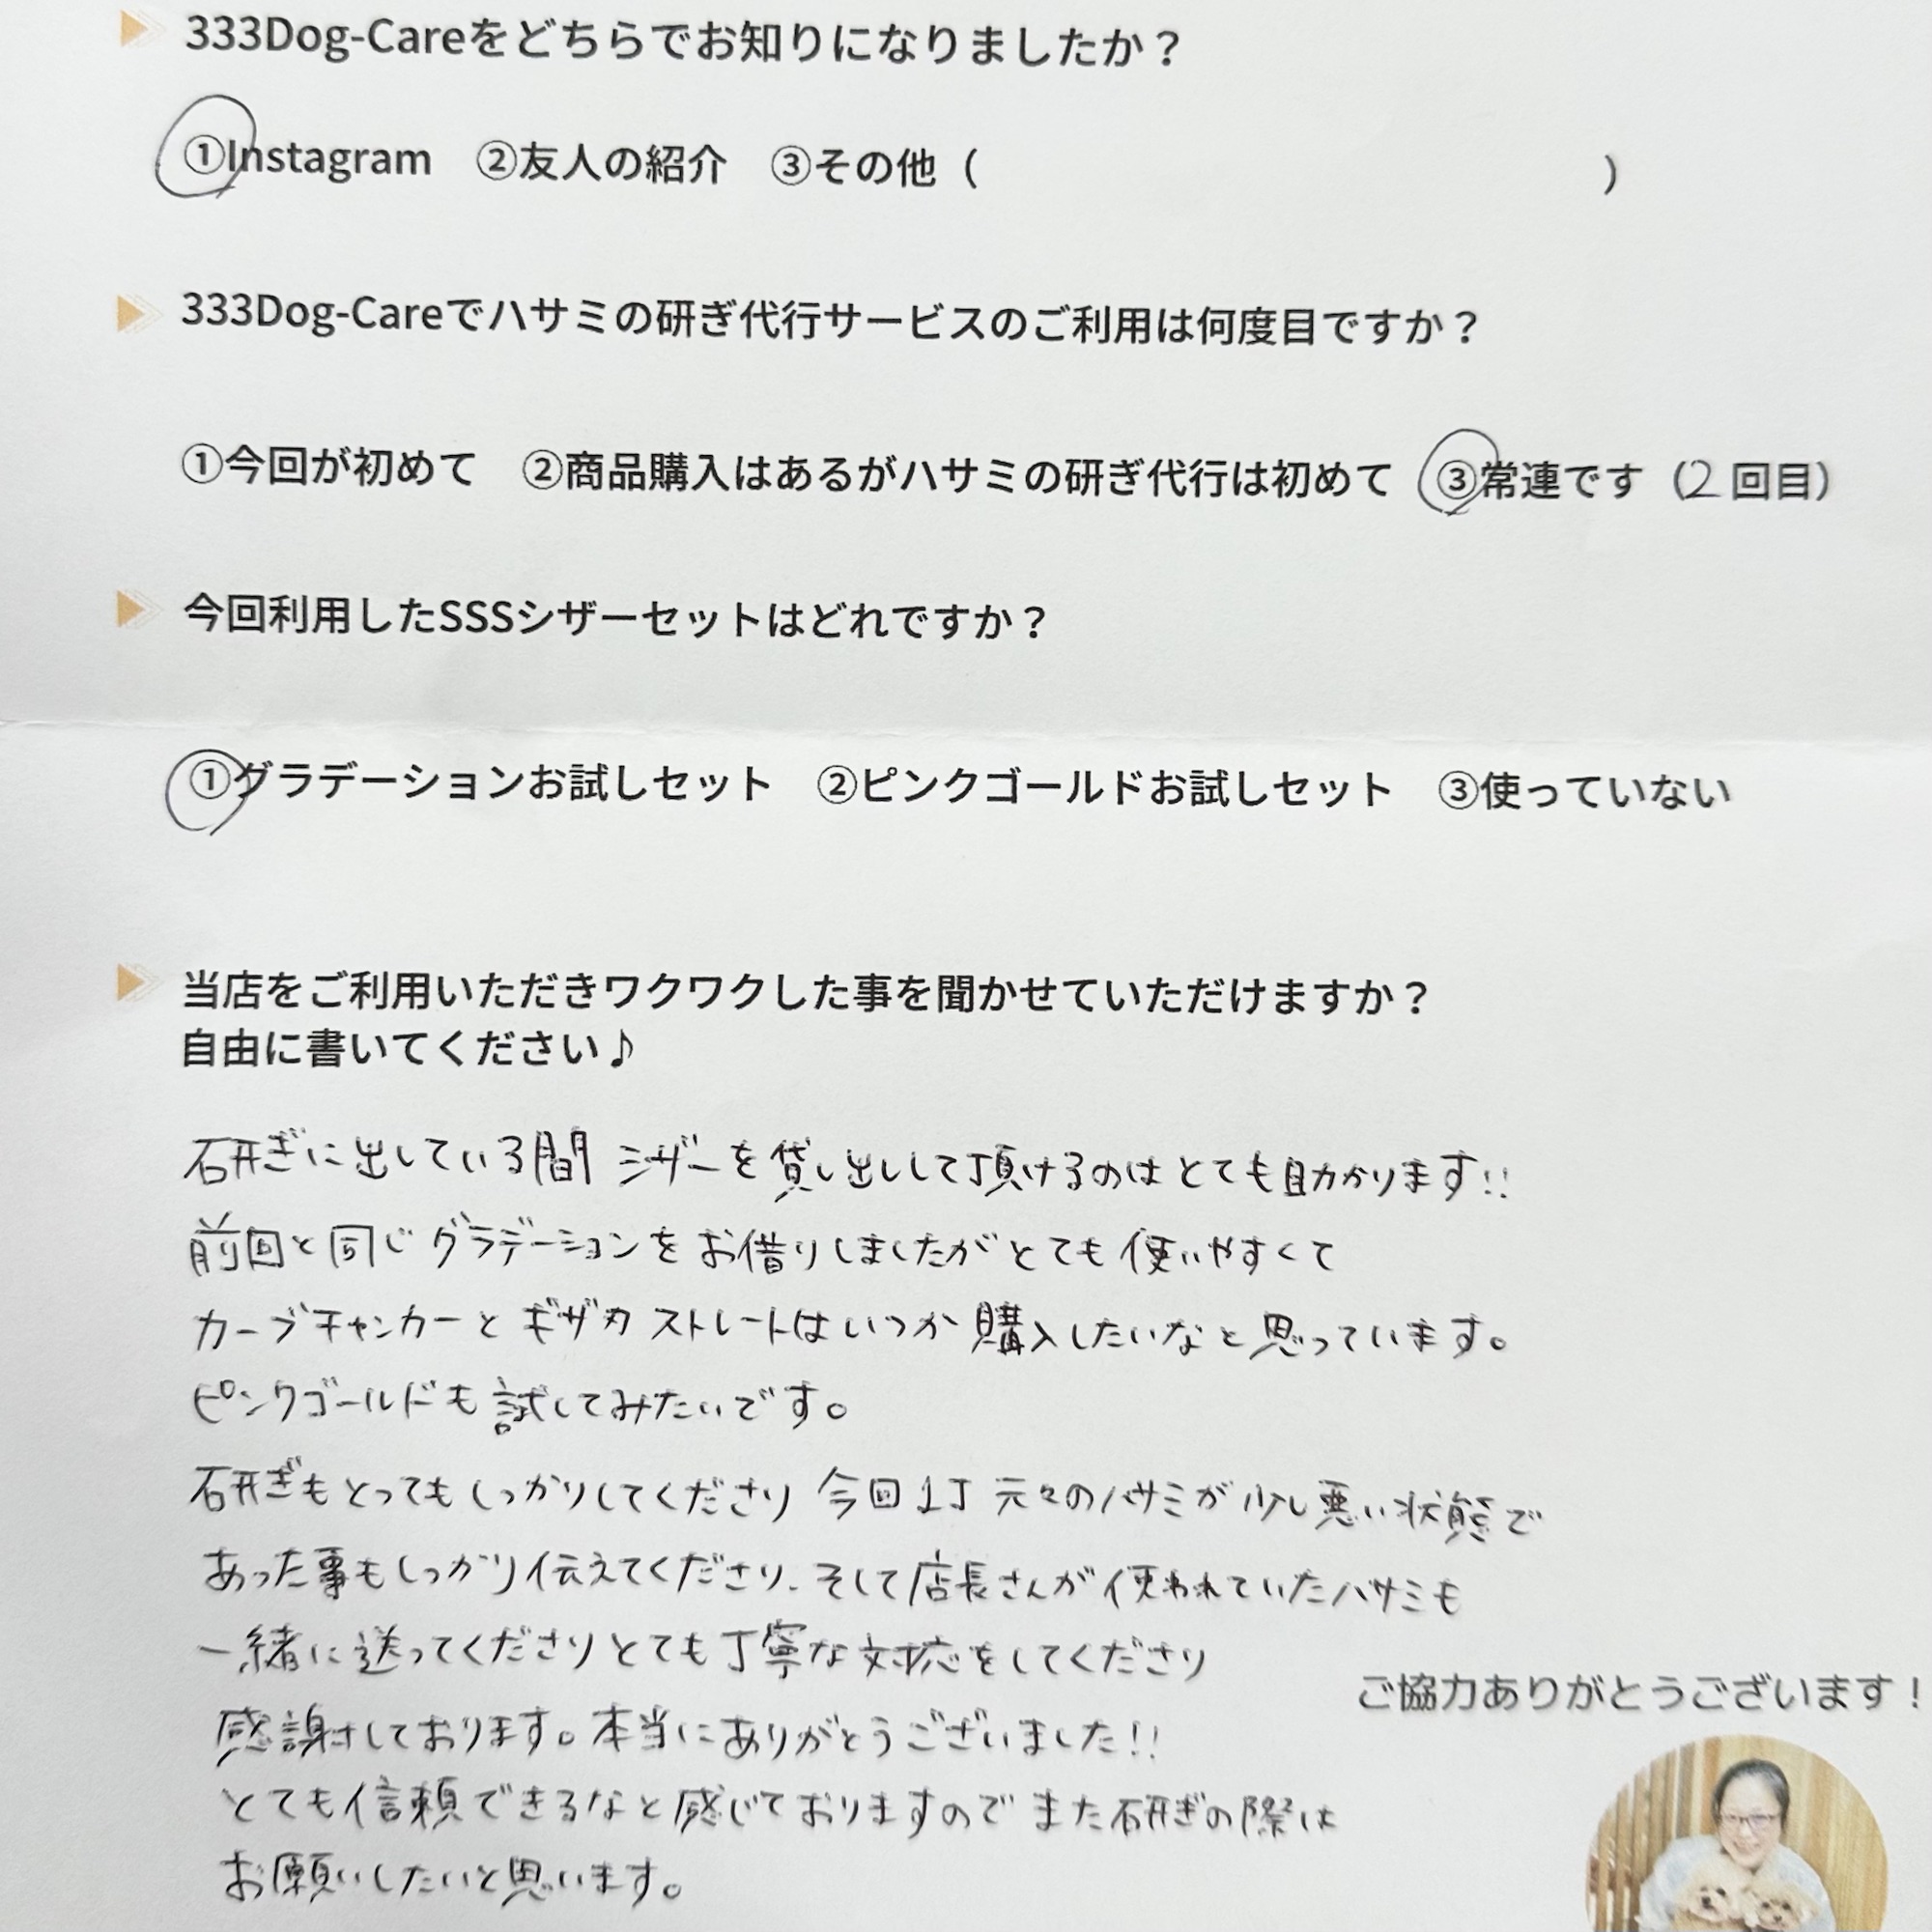 333Dog-Careをどちらでお知りになりましたか？
①Instagram　②友人の紹介　③その他（　　　　　　　　　　　　　　　）
333Dog-Careでハサミの研ぎ代行サービスのご利用は何度目ですか？
①今回が初めて　②商品購入はあるがハサミの研ぎ代行は初めて　③常連です（2回目）
今回利用したSSSシザーセットはどれですか？
①グラデーションお試しセット　②ピンクゴールドお試しセット　③使っていない
当店をご利用いただきワクワクした事を聞かせていただけますか？
自由に書いてください♪
研ぎに出している間 シザーを貸し出しして頂けるのはとても助かります!!
前回と同じグラデーションをお借りしましたがとても使いやすくて
カーブチャンカーとギザ刃ストレートはいつか購入したいなと思っています。
ピンクゴールドも試してみたいです。
研ぎもとってもしっかりしてくださり 今回1丁 元々のハサミが少し悪い状態で
あった事もしっかり伝えてくださり、そして店長さんが使われていたハサミも
一緒に送ってくださりとても丁寧な対応をしてくださり
感謝しております。本当にありがとうございました!!
とても信頼できるなと感じておりますのでまた研ぎの際は
お願いしたいと思います。
ご協力ありがとうございます！